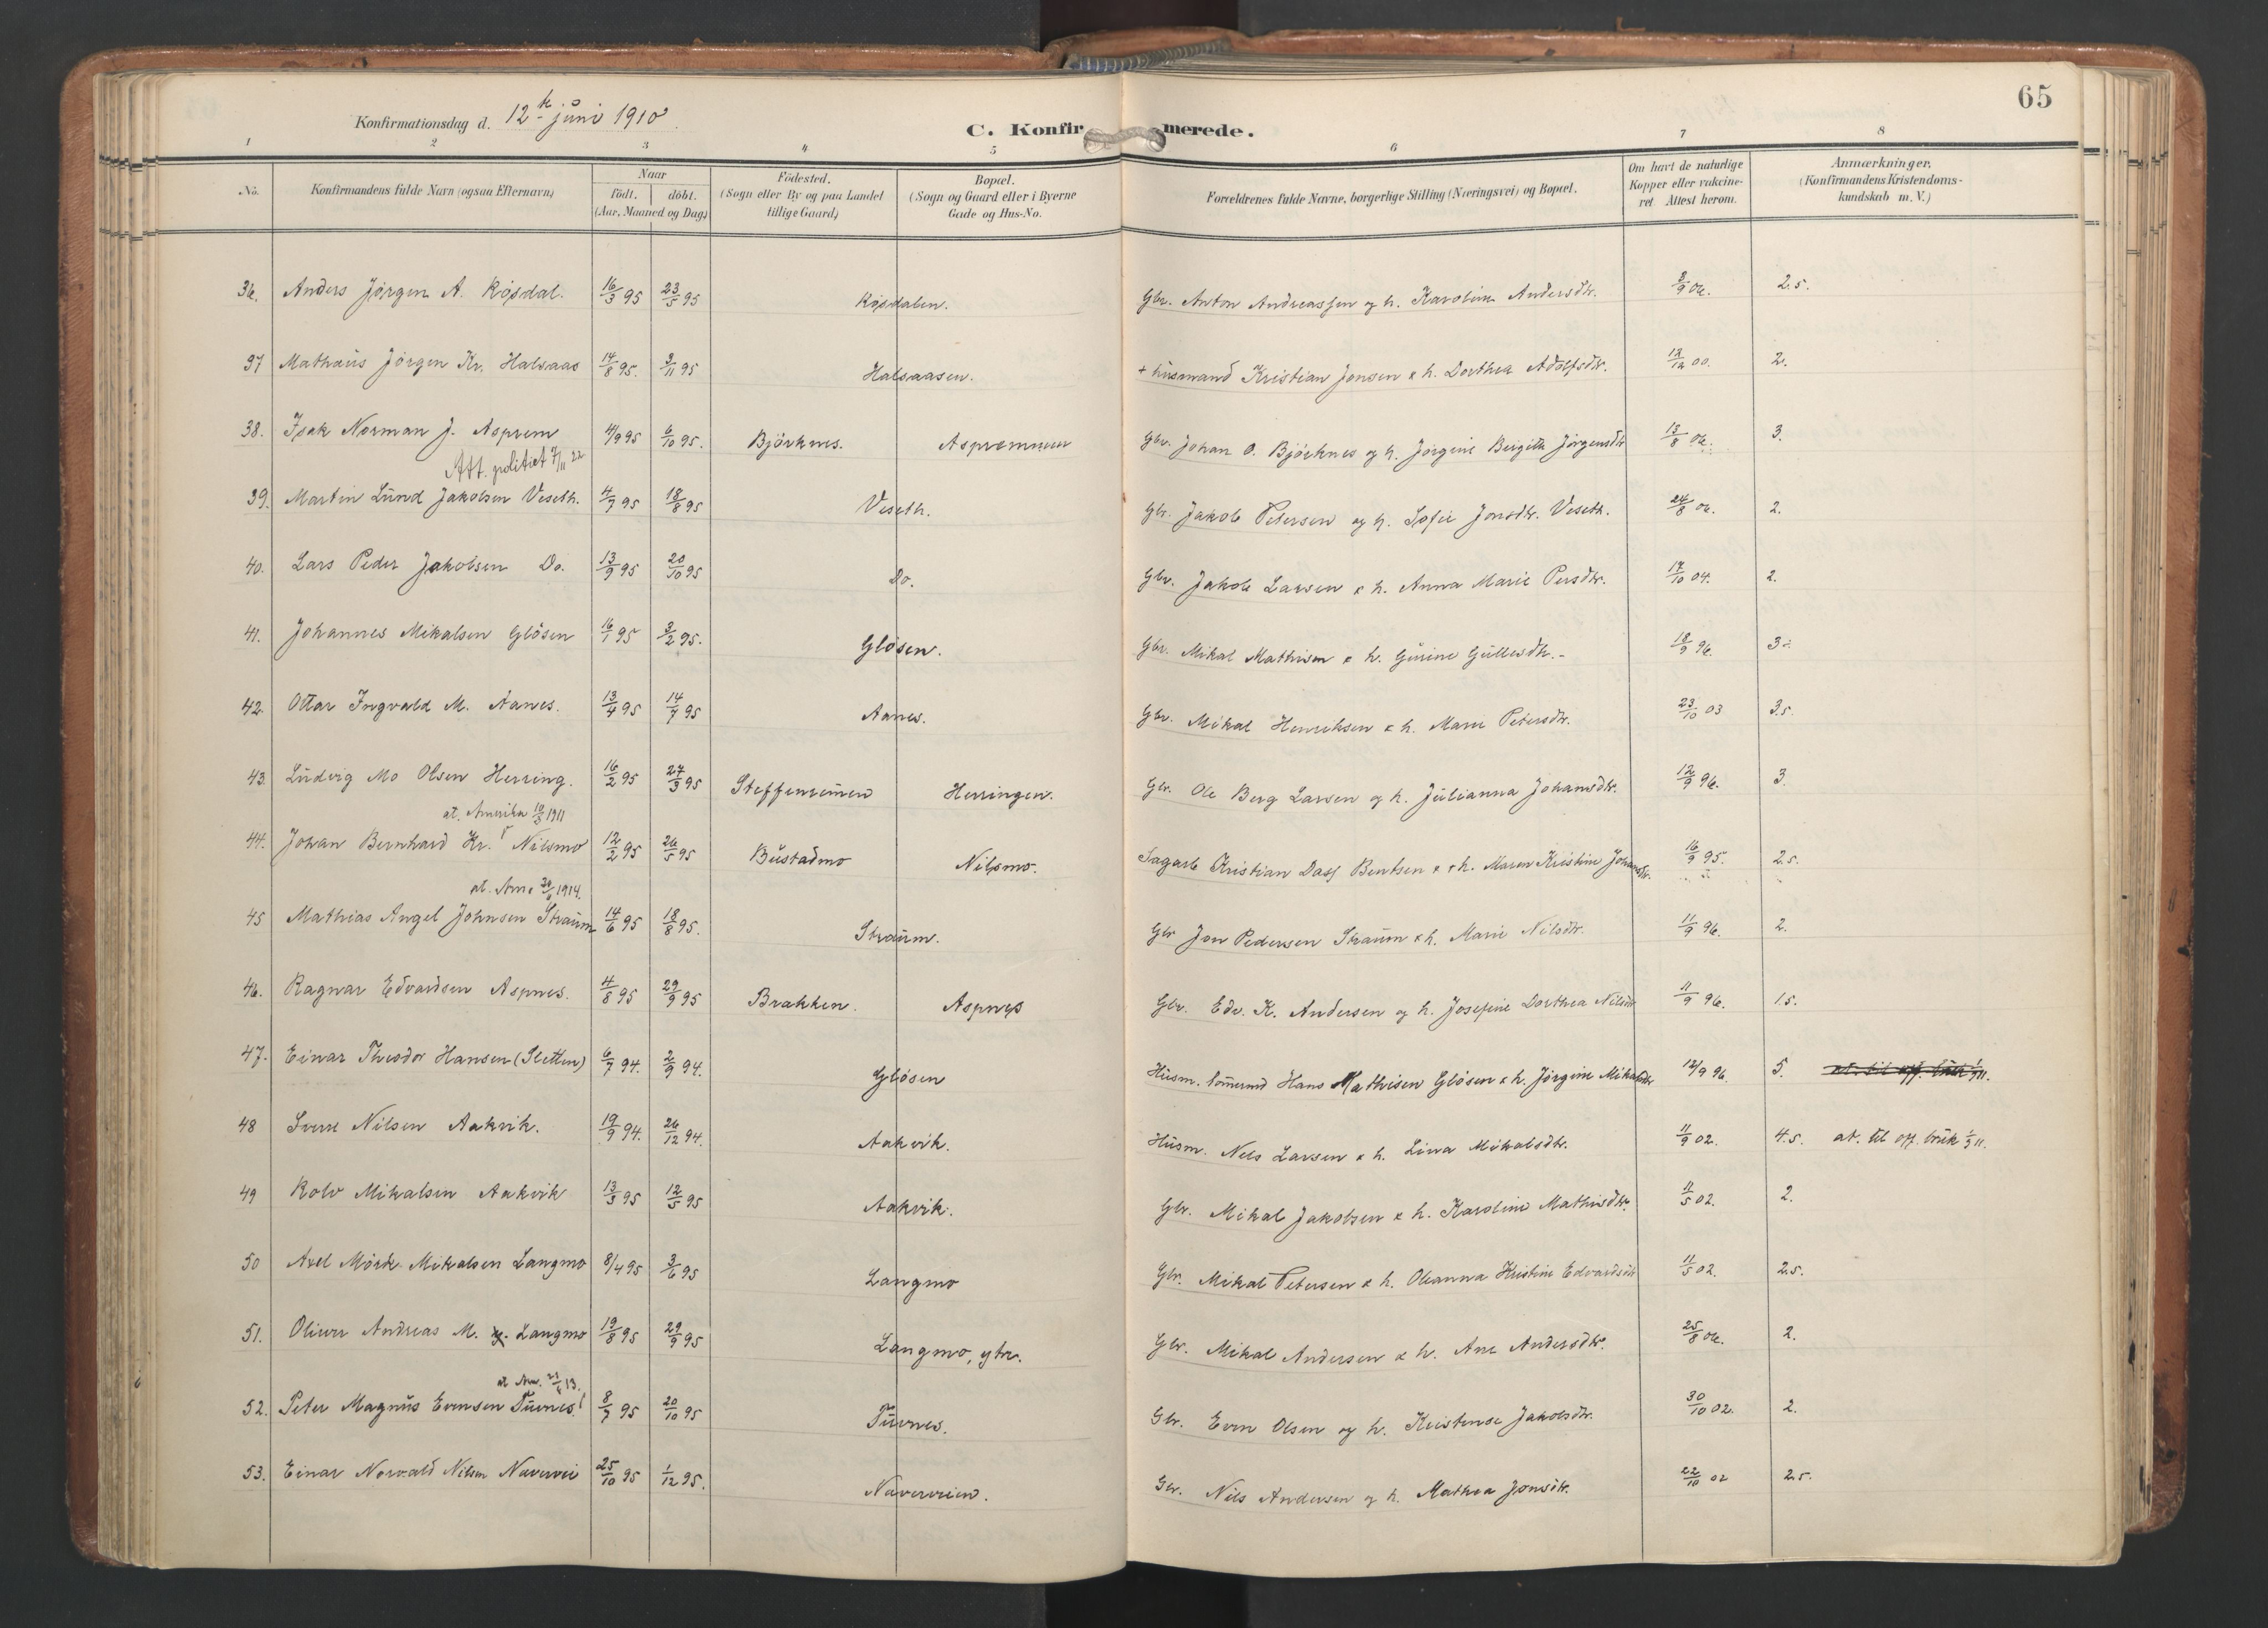 65
Konfirmationsdag d. 12te juni 1910.
C. Konfirmerede.
1 2 3 4 5 6 7 8
No. Konfirmandens fulde Navn (ogsaa Efternavn) Naar født. døbt. (Aar, Maaned og Dag) Fødested. (Sogn eller By og paa Landet tillige Gaard) Bopæl. (Sogn og Gaard eller i Byerne Gade og Hus-No. Forældrenes fulde Navne, borgerlige Stilling (Næringsvei) og Bopæl. Om havt de naturlige Kopper eller vakcineret Attest herom. Anmærkninger, (Konfirmandens Kristendomskundskab m. V.)
36. Anders Jørgen A. Røjsdal. 16/3 95 23/5 95 Røjsdalen. Gbr. Anton Andreassen og h. Karoline Andersdtr. 3/9 06. 2.5.
37 Mathæus Jørgen Kr. Halsaas 14/8 95. 3/11 95 Halsaasen. + husmand Kristian Jonsen & h. Dorthea Adolfsdtr. 12/12 00. 2.
38. Isak Norman J. Asprem 4/9 95 6/10 95. Bjørknes. Aspremmen Gbr. Johan O. Bjørknes og h. Jørgine Birgitte Jørgensdtr 13/8 06. 3.
Att. politiet 7/11 22
39. Martin Lund Jakobsen Veseth. 4/7 95 18/8 95 Veseth. Gbr. Jakob Petersen og h. Sofie Jonsdtr. Veseth. 24/8 06. 2.
40. Lars Peder Jakobsen Do. 13/9 95 20/10 95 Do. Gbr. Jakob Larsen & h. Anna Marie Persdtr. 17/10 04. 2.
41. Johannes Mikalsen Gløsen 16/1 95 3/2 95. Gløsen. Gbr. Mikal Mathisen & h. Gurine Gullesdtr. - 18/9 96. 3÷
42. Ottar Ingvald M. Aanes. 13/4 95 14/7 95 Aanes. Gbr. Mikal Henriksen & h. Marie Petersdtr. 23/10 03 3.5.
43. Ludvig Mo Olsen Herring. 16/2 95 24/3 95 Steffensmoen Herringen. Gbr. Ole Berg Larsen og h. Julianna Johansdtr. 12/9 96. 3.
at. Amerika 10/3 1911
44. Johan Bernhard Kr. Nilsmo 12/2 95 26/5 95 Bustadmo Nilsmo. Sagarb Kristian Dass Bentsen & + h. Maren Kristine Johansdtr. 16/9 95. 2.5.
at. Am. 30/ 1914.
45 Mathias Angel Johnsen Straum 14/6 95 18/8 95. Straum. Gbr Jon Pedersen Straum & h. Marie Nilsdtr. 11/9 96. 2.
46. Ragnar Edvardsen Aspnes. 4/8 95 29/9 95 Brakken. Aspnes Gbr. Edv. K. Andersen og h. Josefine Dorthea Nilsdtr 11/9 96. 1.5.
47. Einar Theodor Hansen (Sletten) 6/7 94. 2/9 94. Gløsen Husm. tømmermd Hans Mathisen Gløsen & h. Jørgine Mikalsdtr 12/9 96. 5. at. til off. bruk 1/3 11.
48 Sverre Nilsen Aakvik. 19/9 94. 26/12 94. Aakvik. Husm. Nils Larsen & h. Lina Mikalsdtr. 11/9 02. 4.5. at. til off. bruk 1/3 11.
49 Rolv Mikalsen Aakvik 13/3 95 12/5 95 Aakvik. Gbr. Mikal Jakobsen & h. Karoline Mathisdtr. 11/5 02. 2.
50 Axel Mørk Mikalsen Langmo 8/4 95 3/6 95 Langmo Gbr. Mikal Petersen & h. Oleanna Kristine Edvardsdtr 11/5 02. 2.5.
51. Oliver Andreas M. y. Langmo 19/8 95 29/9 95 Langmo, ytre. Gbr. Mikal Andersen & h. Ane Andersdtr. 25/8 06. 2.
at Am. 13.
52. Peter Magnus Evensen Turnes. 8/7 95 20/10 95 Turnes. Gbr. Even Olsen og h. Kristense Jakobsdtr. 30/10 02. 2.
53. Einar Norvald Nilsen Navervei 25/10 95 1/12 95. Naverveien. Gbr. Nils Andersen og h. Mathea Jonsdtr. 22/10 02 2.5.